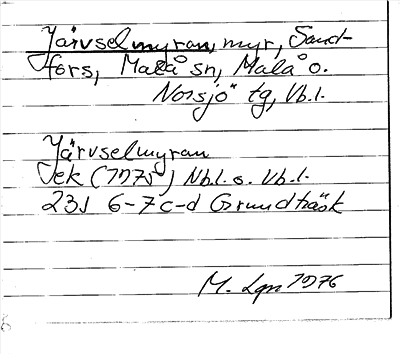 Järvselmyran, myr, Sand-
fors, Malå sn, Malå o.
Norsjö tg, Vb.l.
Järvselmyran
Jek (1975) Nb.l. o. Vb.l.
23J 6-7 c-d Grundträsk
M. Lgn 1976